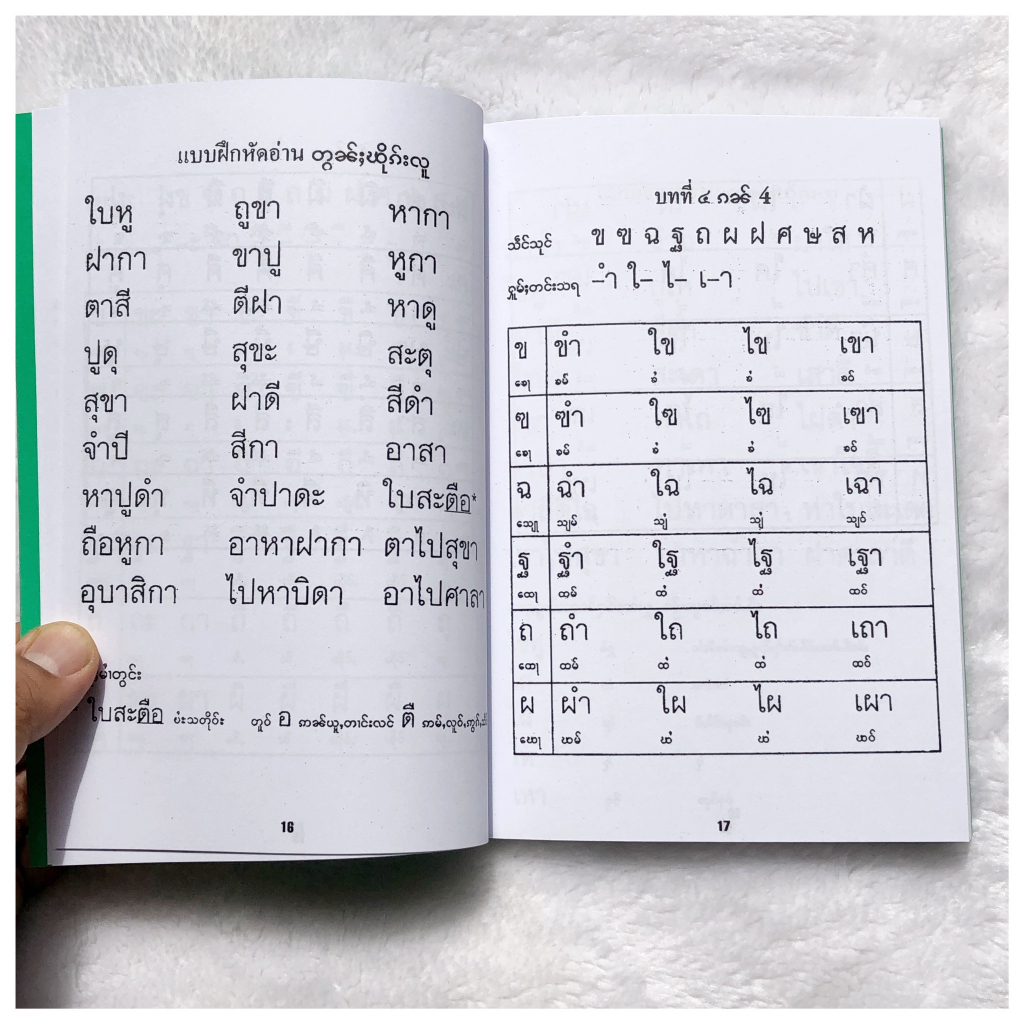 แบบฝึกหัดอ่าน တွၼ်ႈၾိုၵ်းလူ
ใบหู ถูขา หากา
ฝากา ขาปู หูกา
ตาสี ตีฝา หาดู
ปูดุ สุขะ สะตุ
สุขา ฝาดี สีดำ
จำปี สีกา อาสา
หาปูดำ จำปาดะ ใบสะตือ*
ถือหูกา อาหาฝากา ตาไปสุขา
อุบาสิกา ไปหาบิดา อาไปศาลา
ใบสะตือ
16
บทที่ ๔ ၵၼ် 4
သဵင်သုင် ข ฃ ฉ ฐ ถ ผ ฝ ศ ษ ส ห
ႁူမ်ႈတင်းသရ –ำ ใ– ไ– เ–า
ข ขำ ใข ไข เขา
ၶေႃ ၶမ် ၶႆ ၶႆ ၶဝ်
ฃ ฃำ ใฃ ไฃ เฃา
ၶေႃ ၶမ် ၶႆ ၶႆ ၶဝ်
ฉ ฉำ ใฉ ไฉ เฉา
သျေႃ သျမ် သျႆ သျႆ သျဝ်
ฐ ฐำ ใฐ ไฐ เฐา
ထေႃ ထမ် ထႆ ထႆ ထဝ်
ถ ถำ ใถ ไถ เถา
ထေႃ ထမ် ထႆ ထႆ ထဝ်
ผ ผำ ใผ ไผ เผา
ၽေႃ ၽမ် ၽႆ ၽႆ ၽဝ်
17